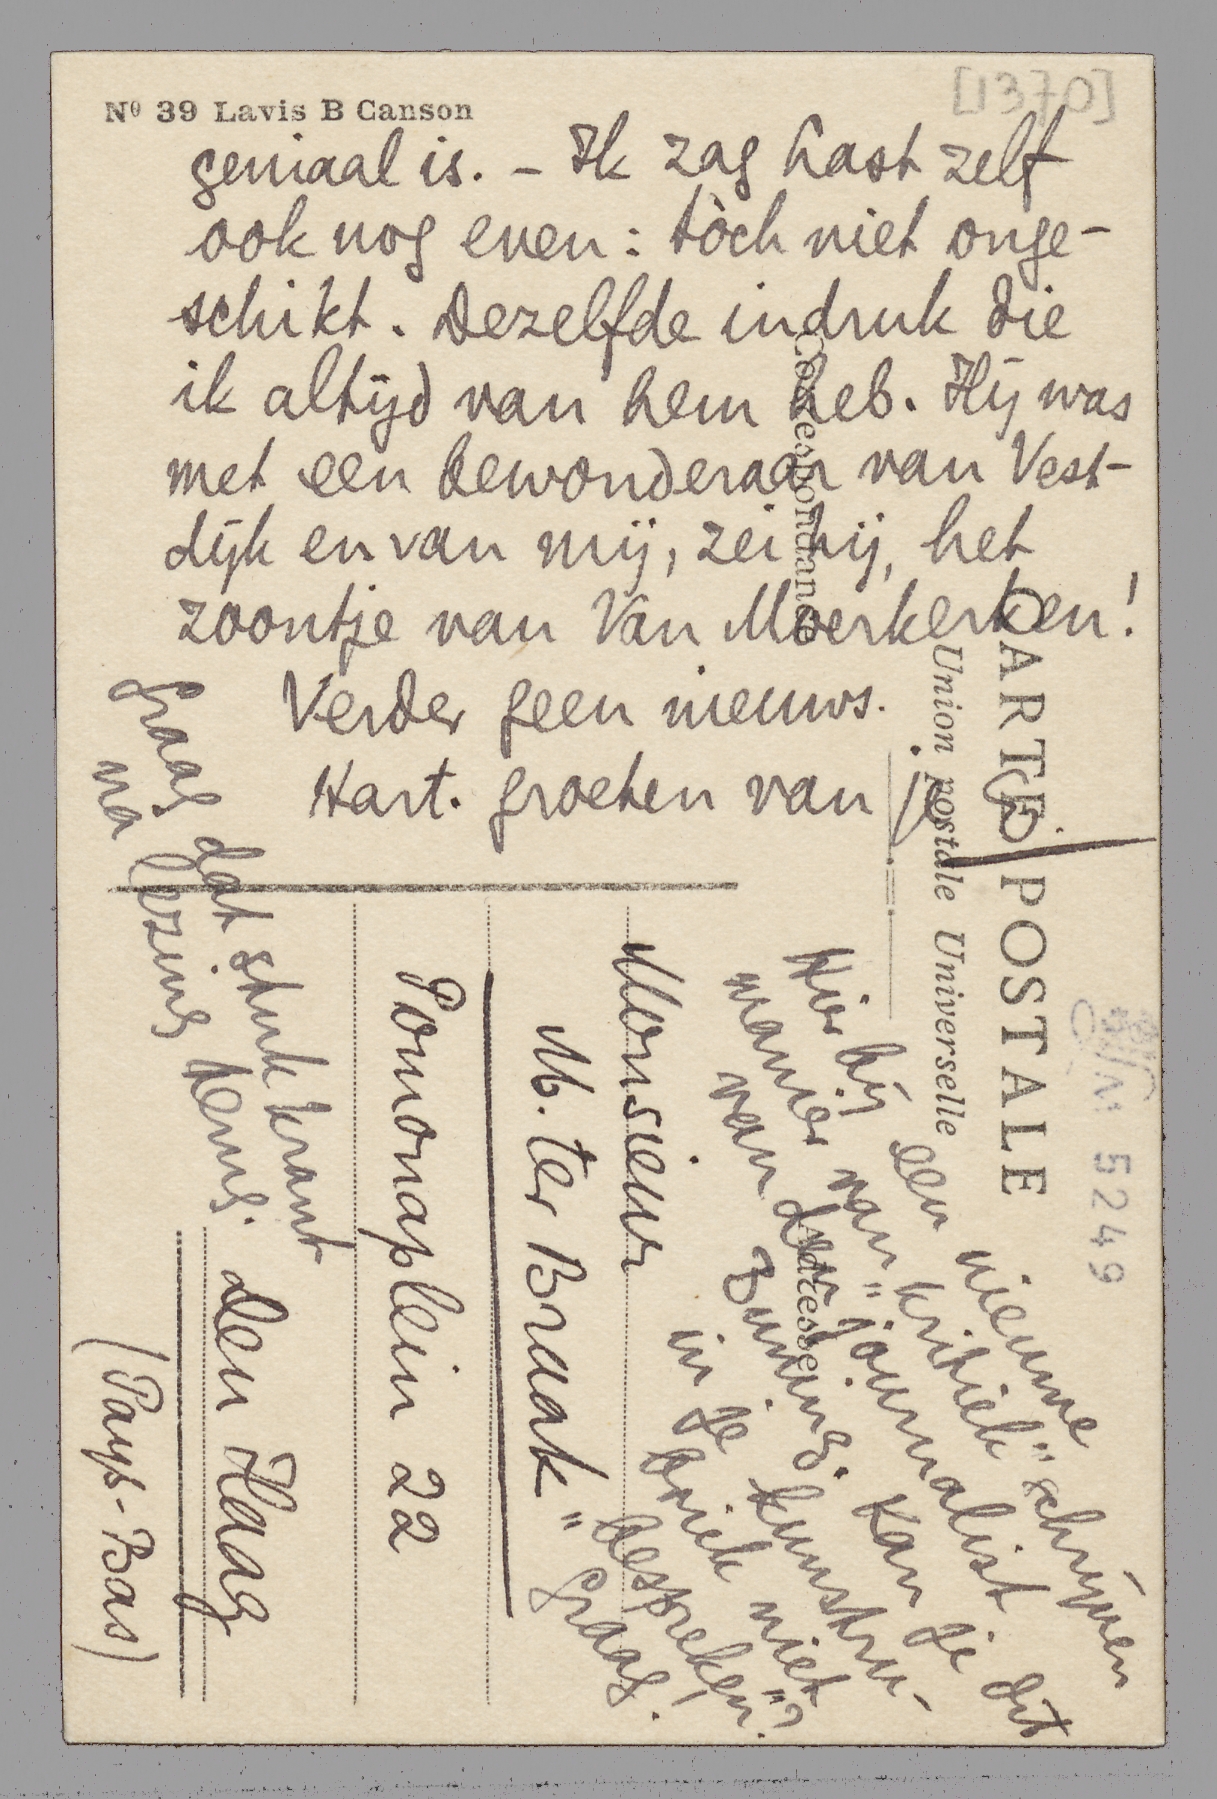 Nº 39 Lavis B Canson
[1370]
geniaal is. – Ik zag Gast zelf
ook nog even: tòch niet onge-
schikt. Dezelfde indruk die
ik altijd van hem heb. Hij was
met een bewonderaar van Vest-
dijk en van mij, zei hij, het
zoontje van Van Moerkerken!
Verder geen nieuws.
Hart. groeten van je
CARTE POSTALE
Union postale Universelle
Correspondance
Adresse
5249
Monsieur
M. ter Braak
Pomonaplein 22
Den Haag
(Pays-Bas)
Hierbij een nieuwe
manier van "kritiek" schrijven
van den journalist
Buning. Kan je dit
in je kunstru-
briek niet
"bespreken"?
Graag!
Graag dat stuk krant
na lezing terug.